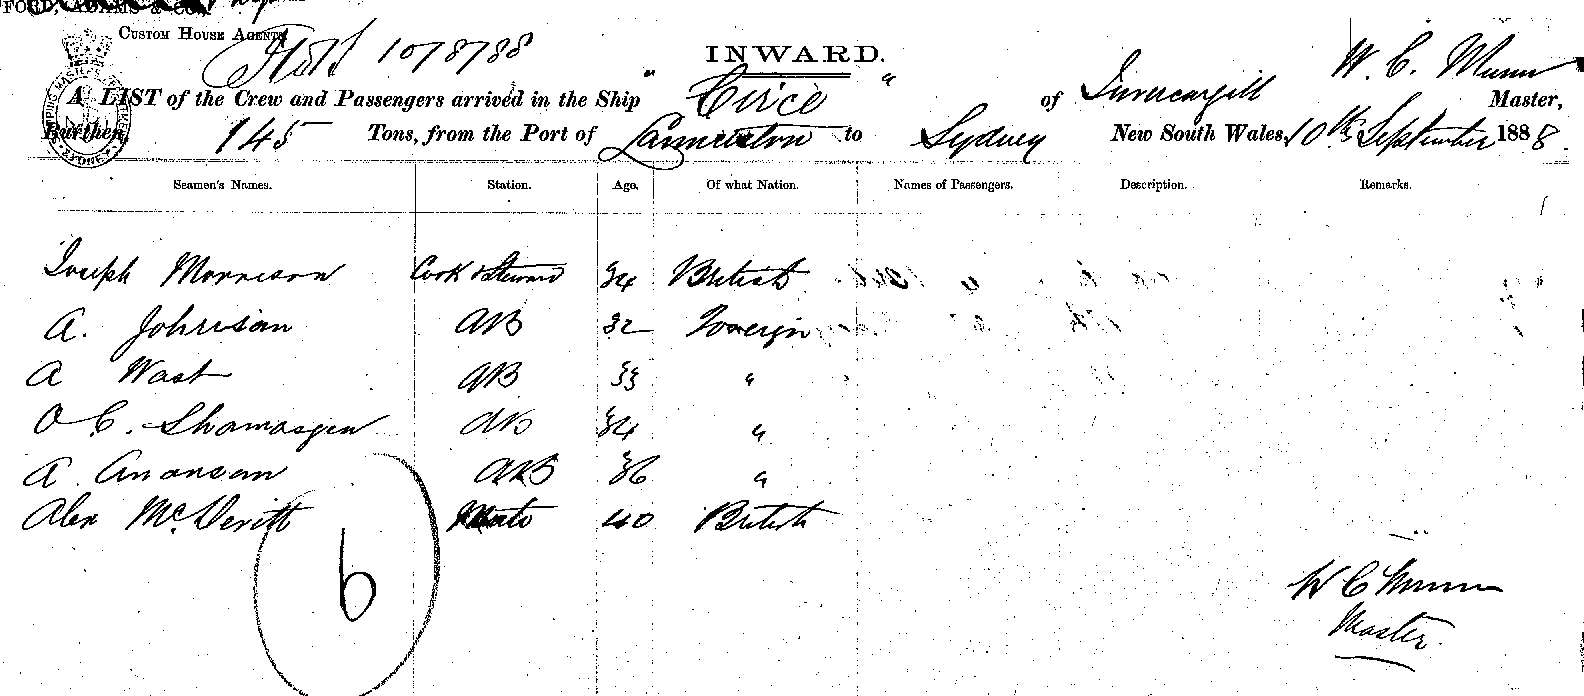 FORD, ADAMS & CO.,
CUSTOM HOUSE AGENTS
10/8/88
INWARD.
A LIST of the Crew and Passengers arrived in the Ship "Circe" of Invercargill W. C. Munn Master,
Burthen 145 Tons, from the Port of Launceston to Sydney New South Wales, 10th September 1888.
Seamen's Names. Station. Age. Of what Nation. Names of Passengers. Description. Remarks.
Joseph Morrison Cook & Steward 34 British
A. Johnson AB 32 Foreign
A Wast AB 33 "
O C. Shamasgen AB 34 "
A. Anansen AB 36 "
Alex McDevitt Mate 40 British
6
W C Munn
Master.